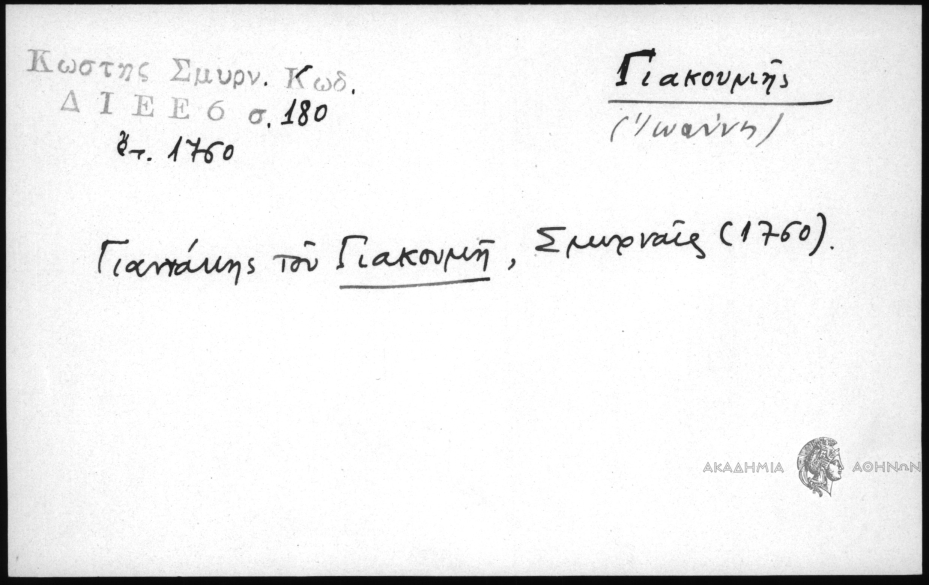 Κωστης Σμυρν. Κωδ.
Δ Ι Ε Ε 6 σ. 180
ἔτ. 1760
Γιακουμῆς
(Ἰωάννη)
Γιαννάκης τοῦ Γιακουμῆ, Σμυρναῖς (1760).
ΑΚΑΔΗΜΙΑ ΑΘΗΝΩΝ